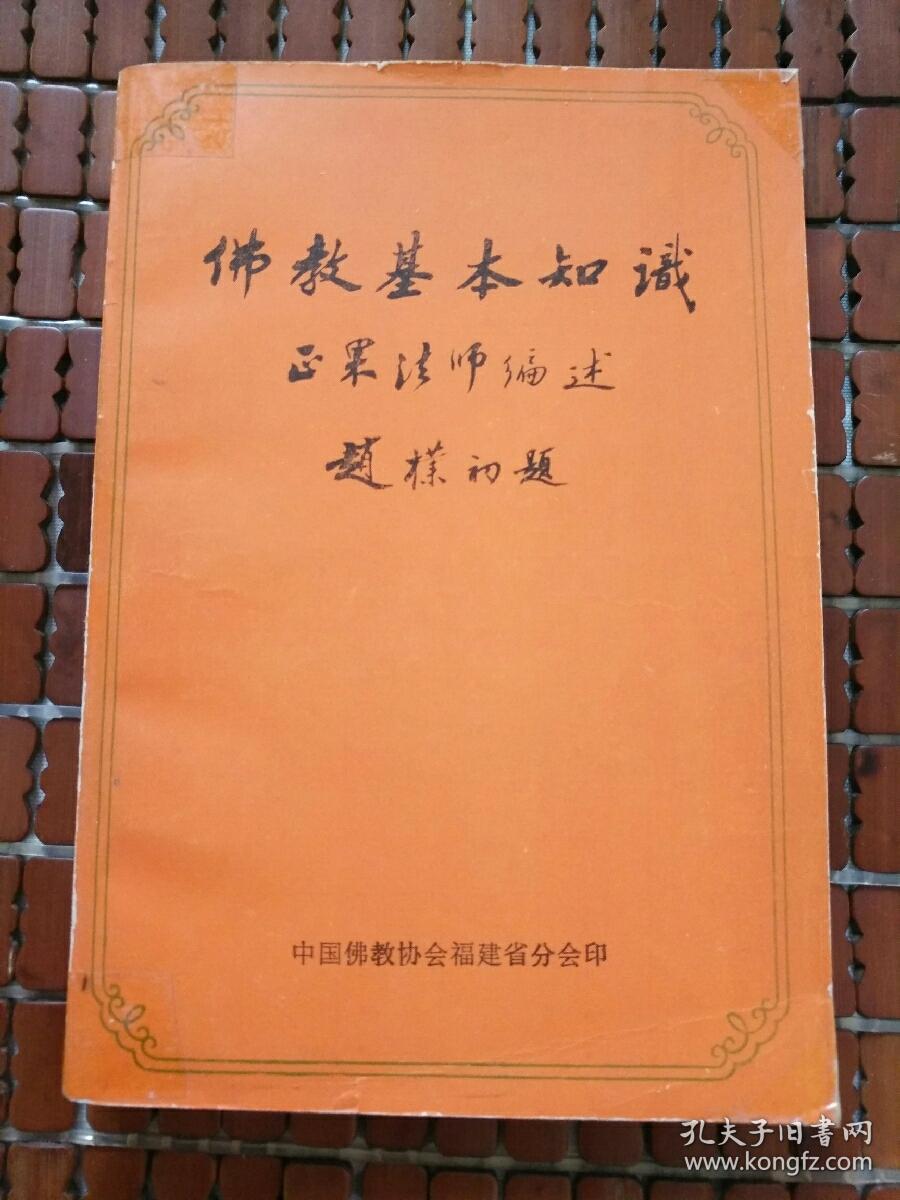 佛教基本知識
正果法师编述
趙樸初題
中国佛教协会福建省分会印
孔夫子旧书网
www.kongfz.com